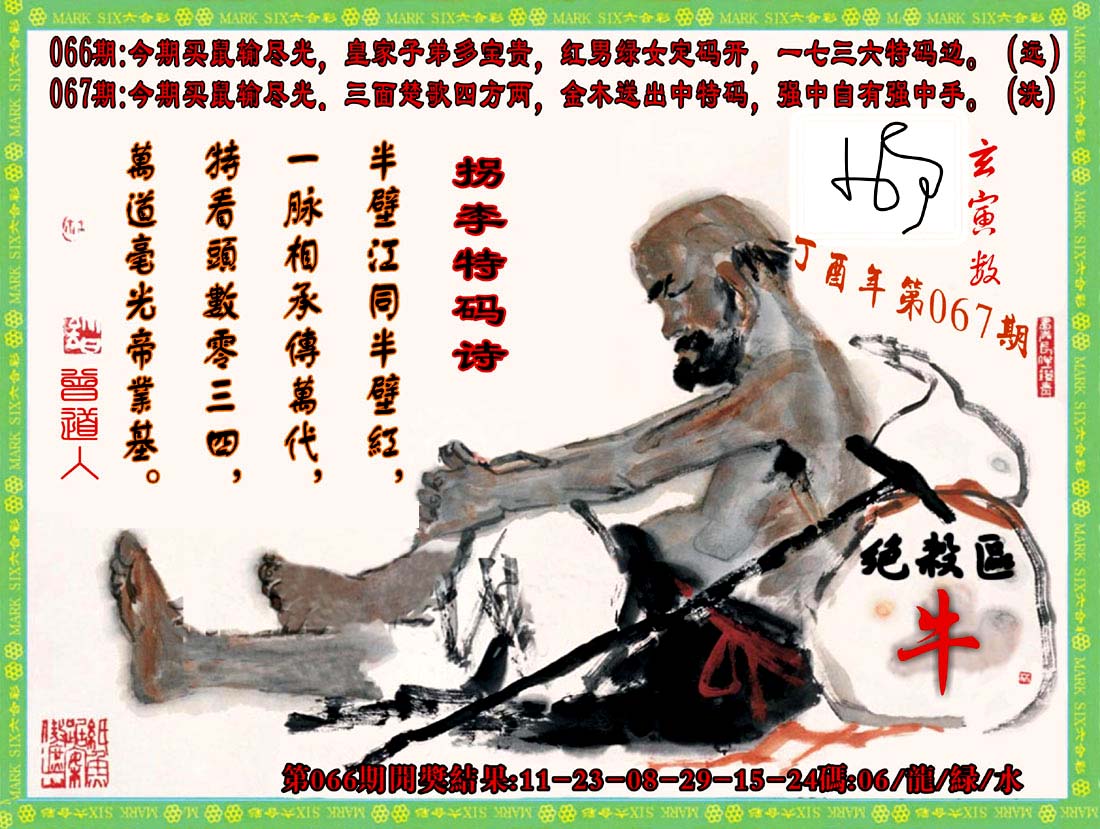 MARK SIX六合彩
066期:今期买鼠输尽光，皇家子弟多宝贵，红男绿女定码开，一七三六特码边。（远）
067期:今期买鼠输尽光．三面楚歌四方两，金木送出中特码，强中自有强中手。（洗）
玄寅数
丁酉年第067期
拐李特码诗
半壁江同半壁紅，
一脉相承傳萬代，
特看頭數零三四，
萬道毫光帝業基。
曾道人
绝殺區
牛
第066期開獎結果:11-23-08-29-15-24碼:06/龍/緑/水